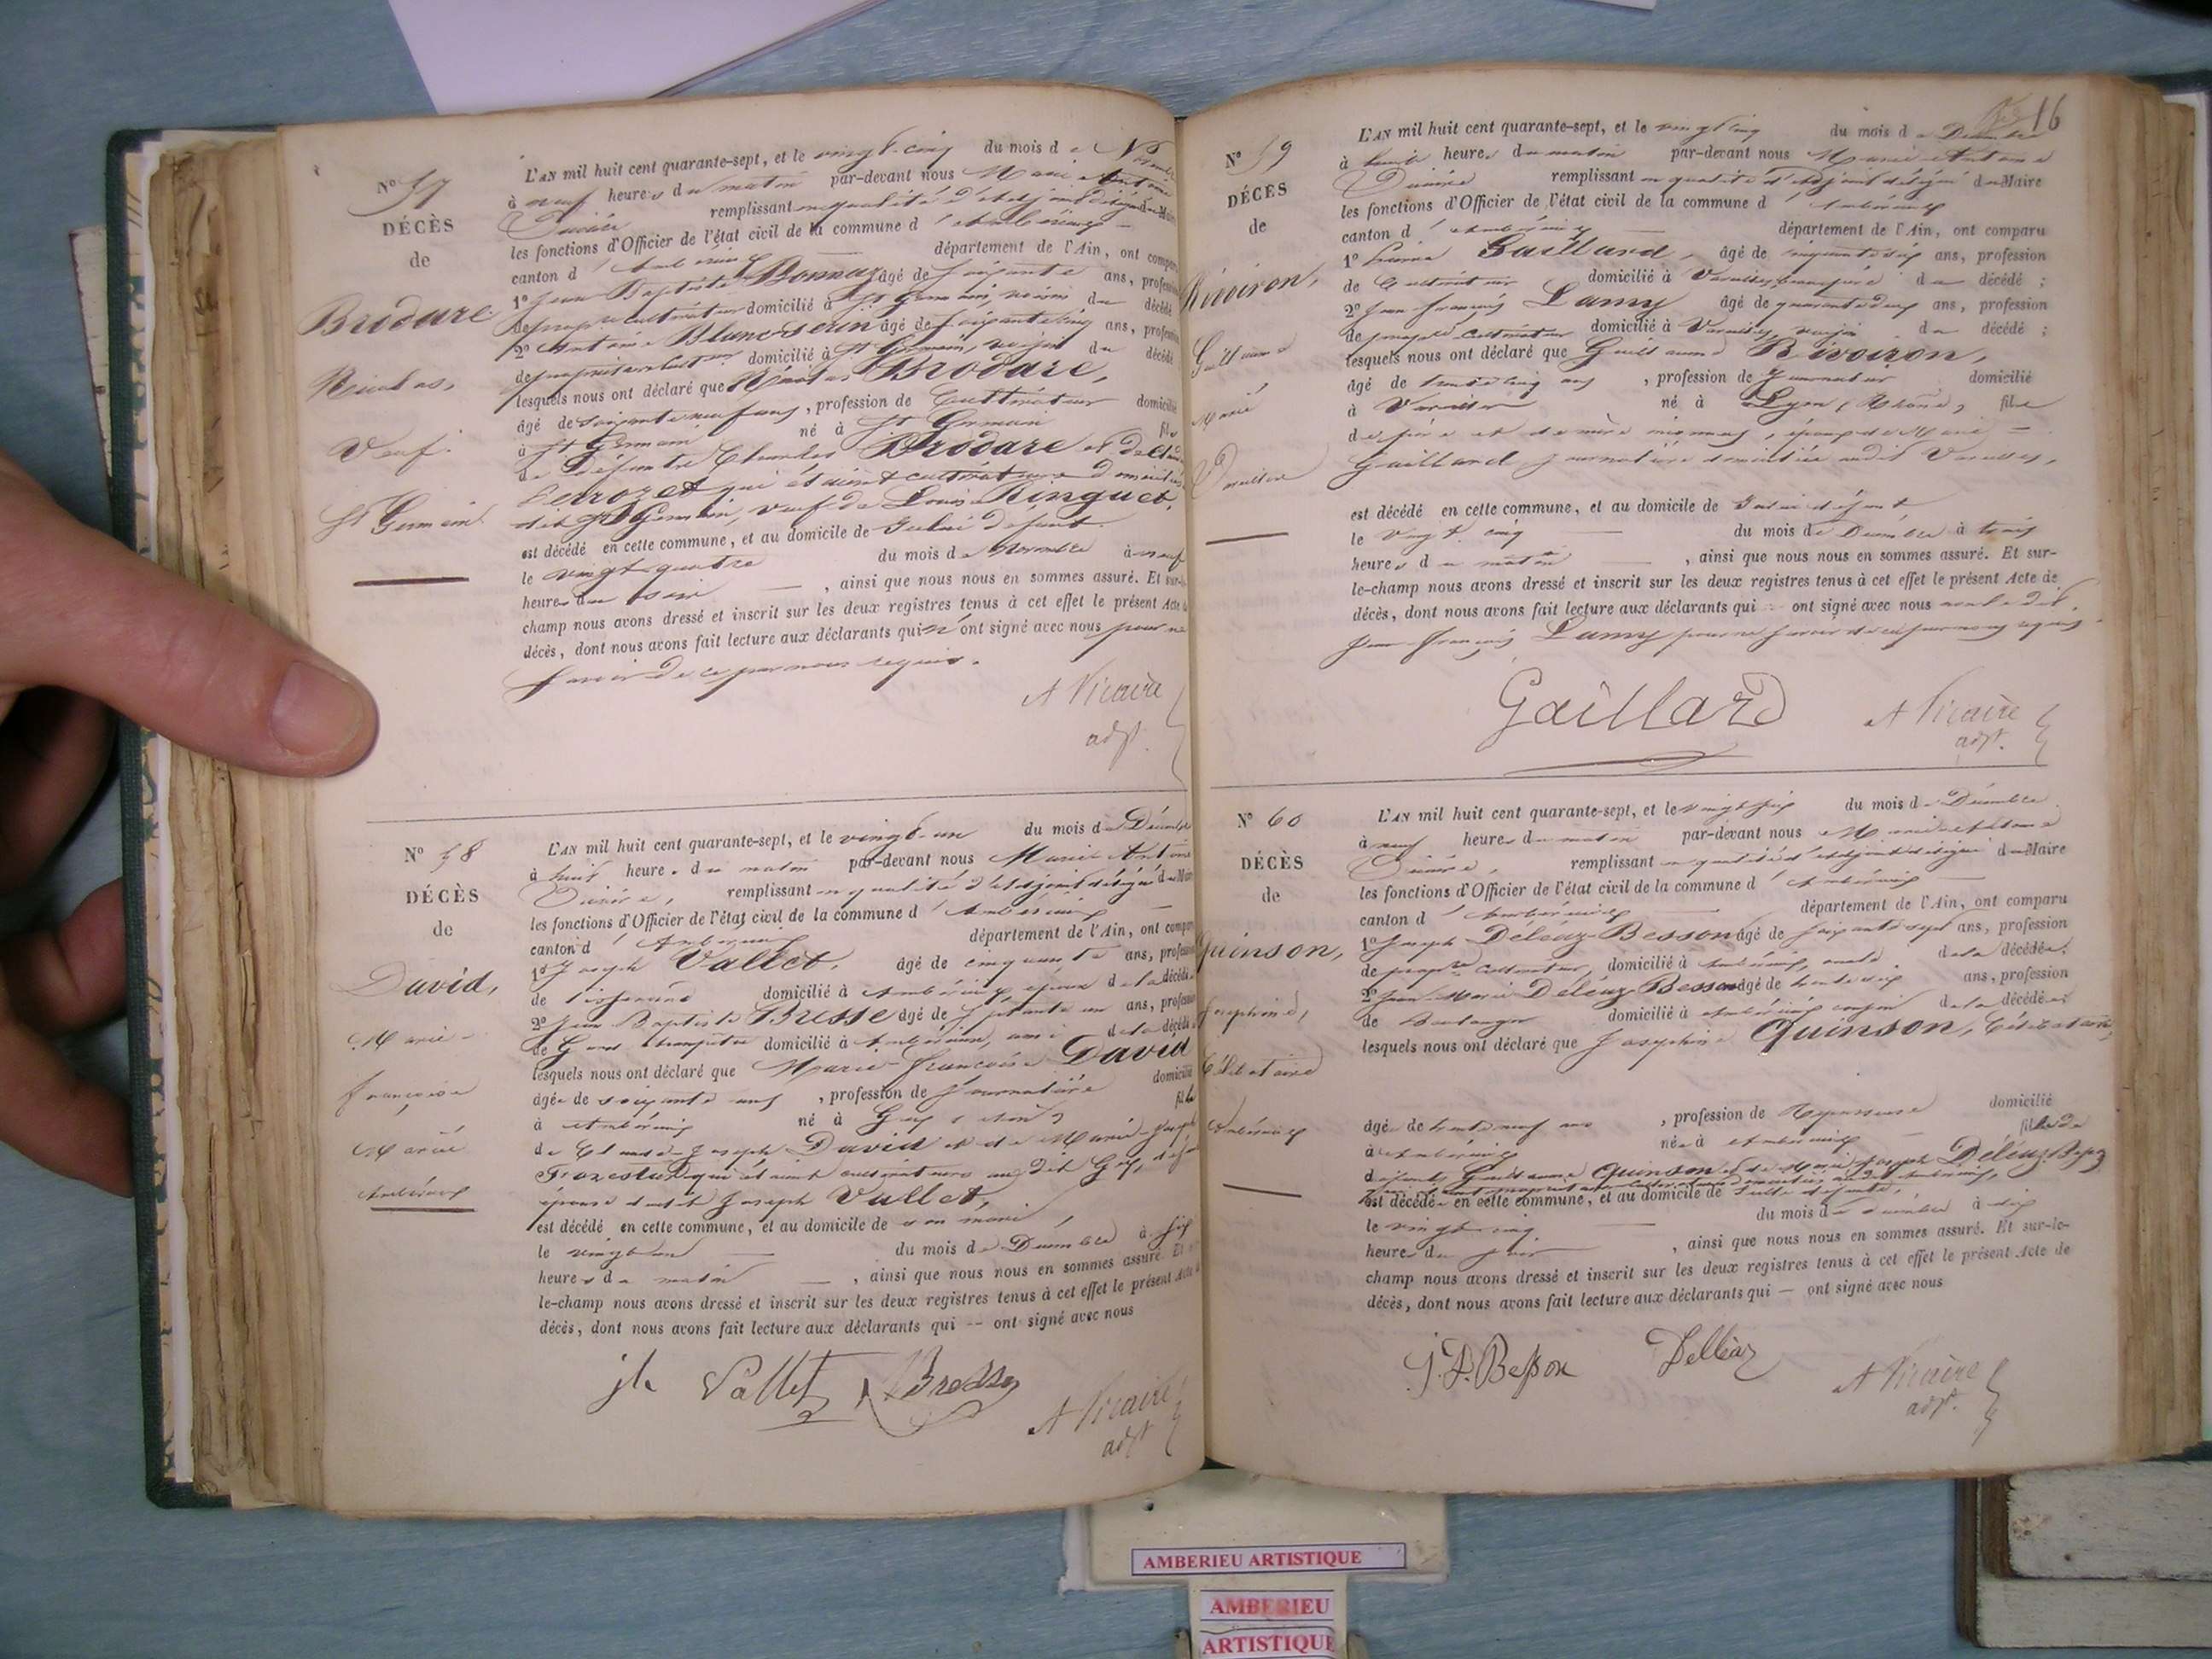 N° 57
DÉCÈS
de
Brodare
Nicolas,
Veuf.
St Germain.
L'AN mil huit cent quarante-sept, et le vingt-cinq du mois de
à neuf heures du matin par-devant nous Marie Antoine
remplissant en qualité d'adjoint délégué du Maire
les fonctions d'Officier de l'état civil de la commune d'Ambérieux
canton d'Ambérieux département de l'Ain, ont comparu
1° Jean Baptiste Bonnaz âgé de soixante ans, profession
de propre cultivateur domicilié à St Germain, voisin du décédé
2° Antoine Blanc-Serin âgé de soixante cinq ans, profession
de propriétaire domicilié à St Germain, voisin du décédé
lesquels nous ont déclaré que Nicolas Brodare,
âgé de soixante neuf ans, profession de Cultivateur domicilié
à St Germain né à St Germain fils
de Défunts Charles Brodare et de
Perrozet qui étaient cultivateurs domiciliés
dit St Germain, veuf de Louise Ringuet,
est décédé en cette commune, et au domicile de Celui défunt
le vingt quatre du mois de novembre à neuf
heures du soir, ainsi que nous nous en sommes assuré. Et sur-le-
champ nous avons dressé et inscrit sur les deux registres tenus à cet effet le présent Acte de
décès, dont nous avons fait lecture aux déclarants qui n'ont signé avec nous pour ne
savoir de ce par nous requis.
A Vicaire
adjt.
N° 58
DÉCÈS
de
David,
Marie-
françoise
Mariée
Ambérieux
L'AN mil huit cent quarante-sept, et le vingt-un du mois de Décembre
à huit heures du matin par-devant nous Marie Antoine
remplissant en qualité d'adjoint délégué du Maire
les fonctions d'Officier de l'état civil de la commune d'Ambérieux
canton d'Ambérieux département de l'Ain, ont comparu
1° Joseph Vallet, âgé de cinquante ans, profession
de domicilié à Ambérieux époux de la décédée
2° Jean Baptiste Bresse âgé de septante un ans, profession
de Garde champêtre domicilié à Ambérieux, ami de la décédée
lesquels nous ont déclaré que Marie-françoise David
âgée de soixante ans, profession de Journalière domicilié
à Ambérieux né à fille
de Claude-Joseph David et de Marie-Joseph
qui étaient cultivateurs au dit
épouse dudit Joseph Vallet,
est décédé en cette commune, et au domicile de son mari,
le vingt un du mois de Décembre à six
heures du matin, ainsi que nous nous en sommes assuré. Et
le-champ nous avons dressé et inscrit sur les deux registres tenus à cet effet le présent Acte
décès, dont nous avons fait lecture aux déclarants qui -- ont signé avec nous
Vallet Bresse
A Vicaire
adjt
16
N° 59
DÉCÈS
de
Rivoiron,
Guillaume
Marié
Vareilles
L'AN mil huit cent quarante-sept, et le vingt cinq du mois de Décembre
à heures du matin par-devant nous Marie Antoine
remplissant en qualité d'adjoint délégué du Maire
les fonctions d'Officier de l'état civil de la commune d'Ambérieux
canton d'Ambérieux département de l'Ain, ont comparu
1° Gaillard, âgé de cinquante six ans, profession
de Cultivateur domicilié à Vareilles, du décédé ;
2° Jean françois Lamy âgé de quarante deux ans, profession
de propre cultivateur domicilié à Vareilles, voisin du décédé ;
lesquels nous ont déclaré que Guillaume Rivoiron,
âgé de trente cinq ans, profession de Journalier domicilié
à Vareilles né à Lyon (Rhône) fils
de père et de mère inconnus, époux de Marie
Gaillard journalière domiciliée audit Vareilles,
est décédé en cette commune, et au domicile de Celui défunt
le Vingt cinq du mois de Décembre à trois
heures du matin, ainsi que nous nous en sommes assuré. Et sur-
le-champ nous avons dressé et inscrit sur les deux registres tenus à cet effet le présent Acte de
décès, dont nous avons fait lecture aux déclarants qui -- ont signé avec nous
Jean françois Lamy pour ne savoir de ce par nous requis.
Gaillard
A Vicaire
adjt.
N° 60
DÉCÈS
de
Quinson,
Josephine,
Célibataire
Ambérieux
L'AN mil huit cent quarante-sept, et le vingt six du mois de Décembre
à neuf heures du matin par-devant nous Marie Antoine
remplissant en qualité d'adjoint délégué du Maire
les fonctions d'Officier de l'état civil de la commune d'Ambérieux
canton d'Ambérieux département de l'Ain, ont comparu
1° Joseph Déléaz-Besson âgé de soixante sept ans, profession
de propre cultivateur, domicilié à Ambérieux, oncle de la décédée.
2° Jean Marie Déléaz-Besson âgé de trente six ans, profession
de Boulanger domicilié à Ambérieux cousin de la décédée
lesquels nous ont déclaré que Josephine Quinson, Célibataire,
âgée de trente neuf ans, profession de Repasseuse domicilié
à Ambérieux née à Ambérieux fille de
défunts Guillaume Quinson et de Marie Joseph Déléaz-Besson
est décédée en cette commune, et au domicile de Celle défunte,
le vingt cinq du mois de décembre à dix
heures du soir, ainsi que nous nous en sommes assuré. Et sur-le-
champ nous avons dressé et inscrit sur les deux registres tenus à cet effet le présent Acte de
décès, dont nous avons fait lecture aux déclarants qui — ont signé avec nous
Besson Delléaz
A Vicaire
adjt.
AMBERIEU ARTISTIQUE
AMBERIEU
ARTISTIQUE